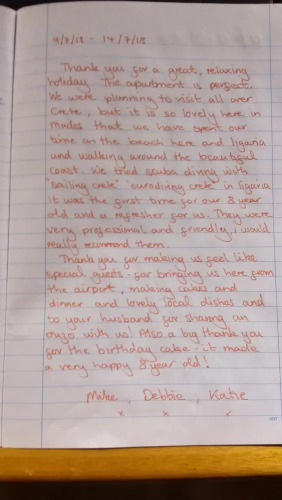 9/7/18 - 14/7/18
Thank you for a great, relaxing
holiday. The apartment is perfect.
We were planning to visit all over
Crete, but it is so lovely here in
Mades that we have spent our
time on the beach here and ligaria
and walking around the beautiful
coast. We tried scuba diving with
"sailing crete" eurodiving crete in ligaria
It was the first time for our 8 year
old and a refresher for us. They were
very professional and friendly, i would
really recommend them.
Thank you for making us feel like
special guests - for bringing us here from
the airport, making cakes and
dinner and lovely local dishes and
to your husband for sharing an
ouzo with us! Also a big thank you
for the birthday cake - it made
a very happy 8 year old!
Mike, Debbie, Katie
x x x